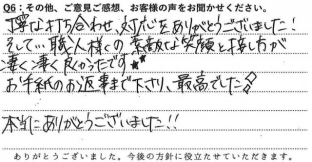 Q6:その他、ご意見ご感想、お客様の声をお聞かせください。
丁寧な打ち合わせ、対応をありがとうございました!
そして…職人様くの素敵な笑顔と接し方が
凄く凄く良かったです★★
お手紙のお返事まで下さり、最高でした!!
本当にありがとうございました!!
ありがとうございました。今後の方針に役立たせていただきます。